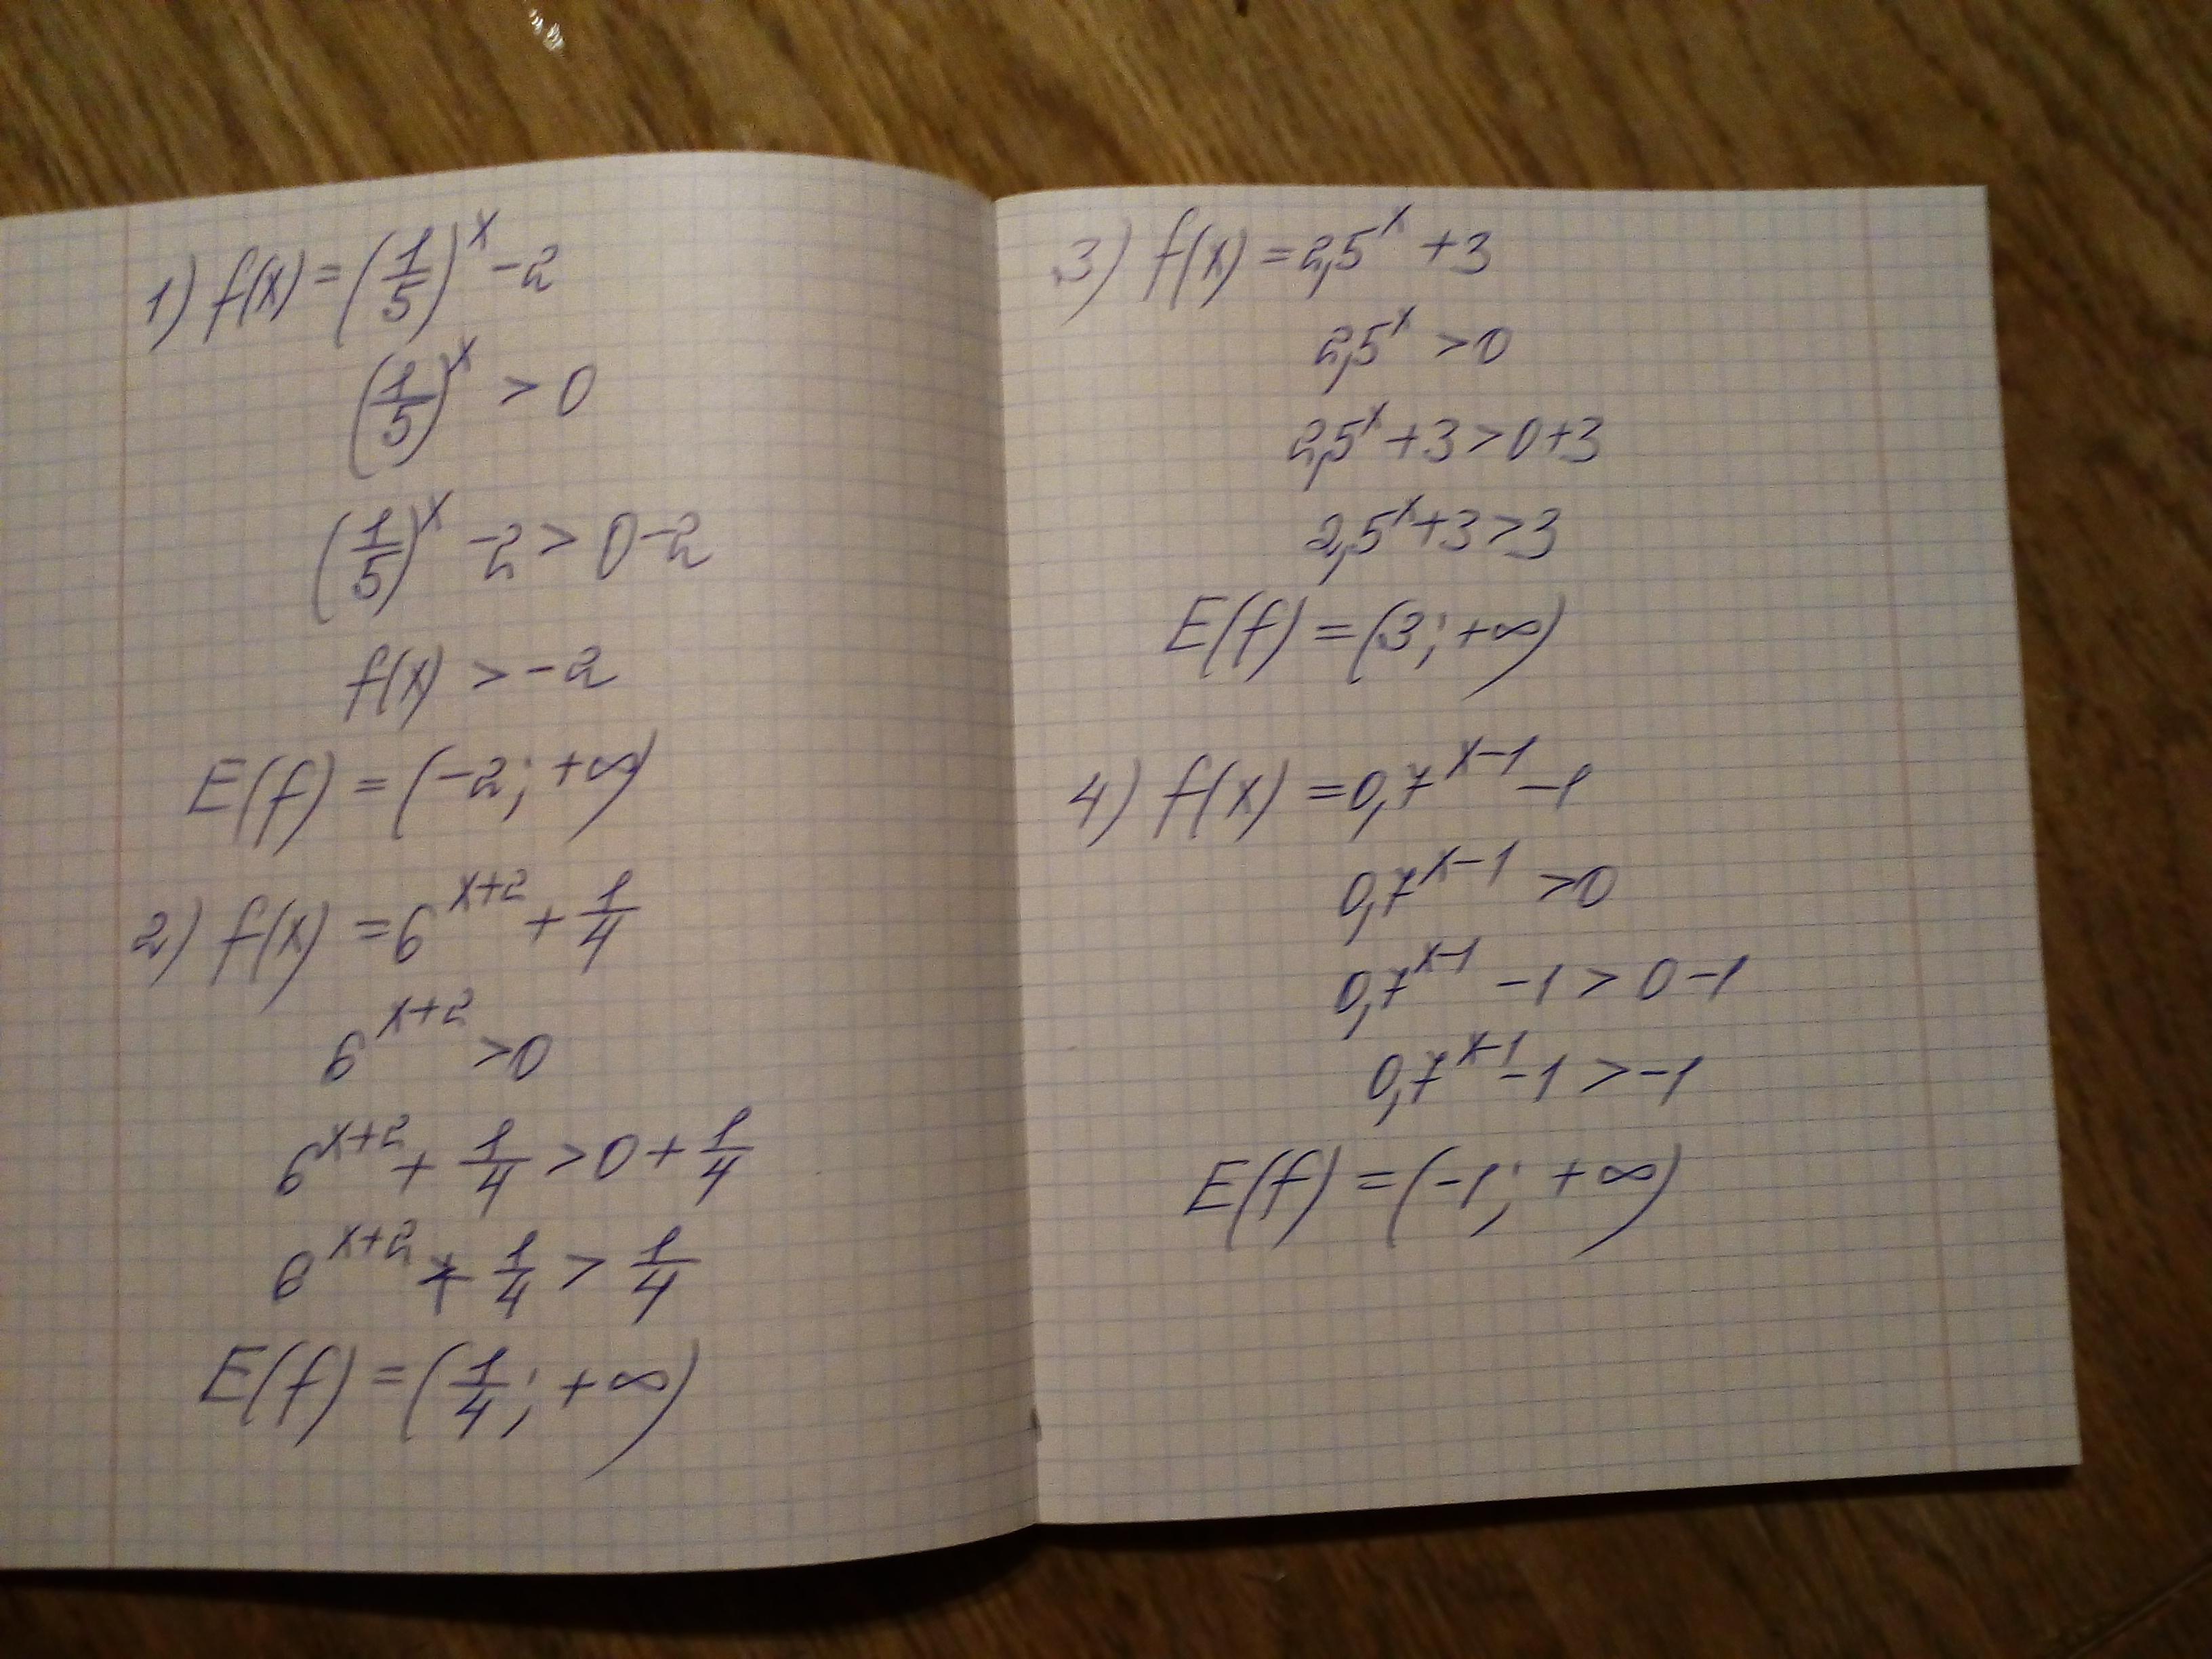 1) f(x) = (1/5)^x - 2
(1/5)^x > 0
(1/5)^x - 2 > 0 - 2
f(x) > -2
E(f) = (-2; +∞)
2) f(x) = 6^(x+2) + 1/4
6^(x+2) > 0
6^(x+2) + 1/4 > 0 + 1/4
6^(x+2) + 1/4 > 1/4
E(f) = (1/4; +∞)
3) f(x) = 2,5^x + 3
2,5^x > 0
2,5^x + 3 > 0 + 3
2,5^x + 3 > 3
E(f) = (3; +∞)
4) f(x) = 0,7^(x-1) - 1
0,7^(x-1) > 0
0,7^(x-1) - 1 > 0 - 1
0,7^(x-1) - 1 > -1
E(f) = (-1; +∞)